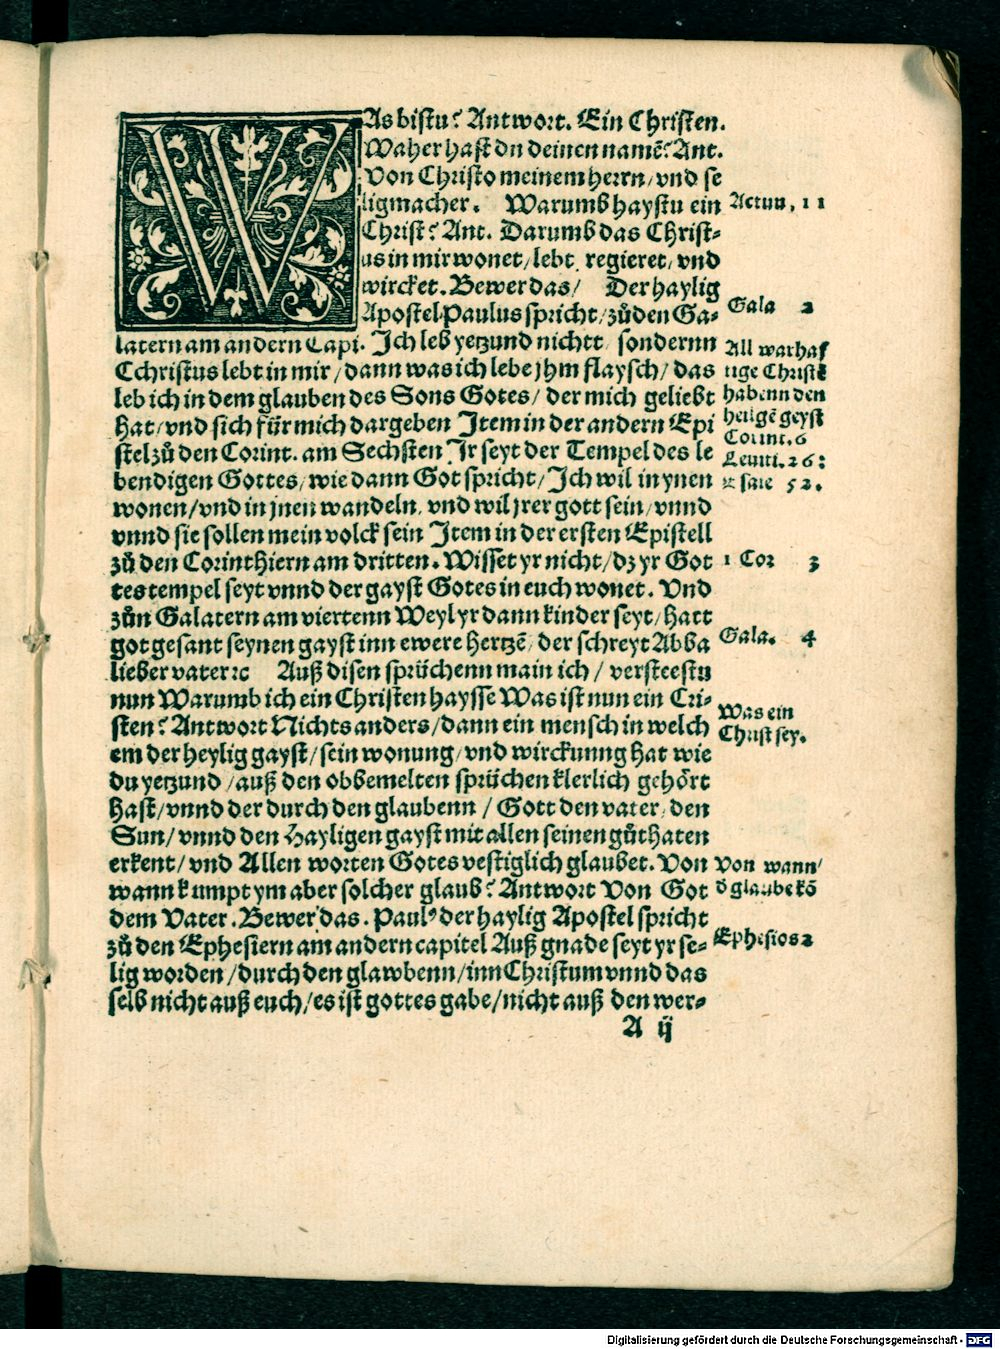 WAs bistu? Antwort. Ein Christen.
Waher hast du deinen namē? Ant.
Von Christo meinem herrn/vnd se
ligmacher. Warumb haystu ein
Christ? Ant. Darumb das Christ-
us in mir wonet/lebt, regieret/vnd
wircket. Bewer das/ Der haylig
Apostel Paulus spricht/zůden Ga-
latern am andern Capi. Ich leb yetzund nichtt/sondernn
Cchristus lebt in mir/dann was ich lebe jhm flaysch/das
leb ich in dem glauben des Sons Gotes/der mich geliebt
hat/vnd sich für mich dargeben Item in der andern Epi
stel zů den Corint. am Sechsten Jr seyt der Tempel des le
bendigen Gottes/wie dann Got spricht/Ich wil in ynen
wonen/vnd in jnen wandeln, vnd wil jrer gott sein/vnnd
vnnd sie sollen mein volck sein Item in der ersten Epistell
zů den Corinthiern am dritten. Wisset yr nicht/dz yr Got
tes tempel seyt vnnd der gayst Gotes in euch wonet. Vnd
zůn Galatern am viertenn Weyl yr dann kinder seyt/hatt
got gesant seynen gayst inn ewere hertzē/der schreyt Abba
lieber vater ꝛc Auß disen sprüchenn main ich/versteestu
nun Warumb ich ein Christen haysse Was ist nun ein Cri-
sten? Antwort Nichts anders/dann ein mensch in welch
em der heylig gayst/sein wonung/vnd wirckunng hat wie
du yetzund/auß den obbemelten sprüchen klerlich gehört
hast/vnnd der durch den glaubenn/Gott den vater/den
Sun/vnnd den Hayligen gayst mit allen seinen gůthaten
erkent/vnd Allen worten Gotes vestiglich glaubet. Von
wann kumpt ym aber solcher glaub? Antwort Von Got
dem Vater. Bewer das. Paul⁹ der haylig Apostel spricht
zů den Ephesiern am andern capitel Auß gnade seyt yr se-
lig worden/durch den glawbenn/inn Christum vnnd das
selb nicht auß euch/es ist gottes gabe/nicht auß den wer-
A ij
Actuu. 11
Gala 2
All warhaf
tige Christē
habenn den
heiligē geyst
Corint. 6
Leuiti. 26:
52.
1 Cor 3
Gala. 4
Was ein
Christ sey.
Von wann/
ð glaube kō
Ephesios 2
Digitalisierung gefördert durch die Deutsche Forschungsgemeinschaft - DFG